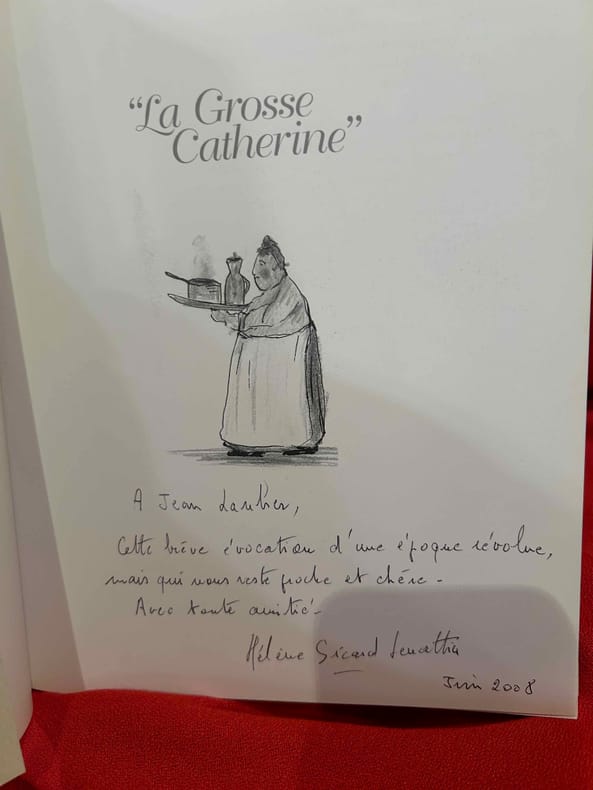 “La Grosse
Catherine”
A Jean Lanher,
Cette brève évocation d'une époque révolue,
mais qui nous reste proche et chère -
Avec toute amitié -
Hélène Sicard Lenattier
Juin 2008